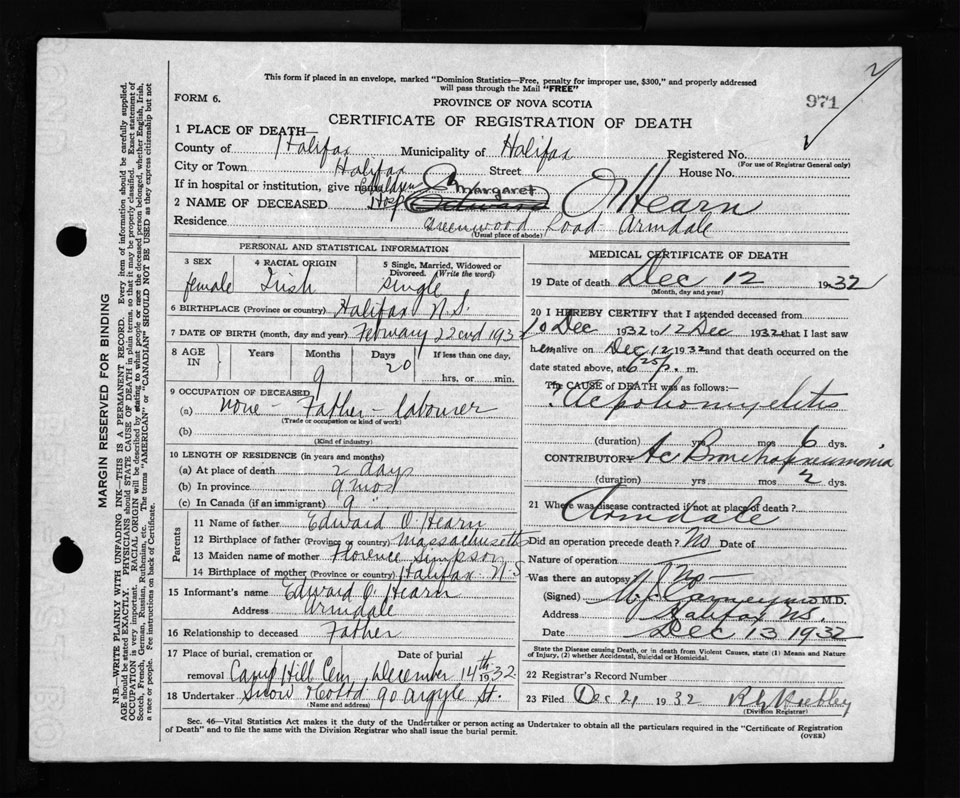 This form if placed in an envelope, marked "Dominion Statistics—Free, penalty for improper use, $300," and properly addressed
will pass through the Mail "FREE"
FORM 6.
PROVINCE OF NOVA SCOTIA
971
CERTIFICATE OF REGISTRATION OF DEATH
1 PLACE OF DEATH—
County of Halifax Municipality of Halifax Registered No.
(For use of Registrar General only)
City or Town Halifax Street House No.
If in hospital or institution, give name Children Hosp
2 NAME OF DECEASED Margaret Edward O'Hearn
Residence Greenwood Road Armdale
(Usual place of abode)
PERSONAL AND STATISTICAL INFORMATION
3 SEX 4 RACIAL ORIGIN 5 Single, Married, Widowed or
Divorced. (Write the word)
female Irish single
6 BIRTHPLACE (Province or country) Halifax N.S.
7 DATE OF BIRTH (month, day and year) February 22nd 1932
8 AGE IN Years Months Days If less than one day,
9 20 hrs. or min.
9 OCCUPATION OF DECEASED
(a) none - Father - labourer
(Trade or occupation or kind of work)
(b)
(Kind of industry)
10 LENGTH OF RESIDENCE (in years and months)
(a) At place of death 2 days
(b) In province 9 mos
(c) In Canada (if an immigrant) 9
Parents
11 Name of father Edward O'Hearn
12 Birthplace of father (Province or country) Massachusetts
13 Maiden name of mother Florence Simpson
14 Birthplace of mother (Province or country) Halifax N.S
15 Informant's name Edward O'Hearn
Address Armdale
16 Relationship to deceased Father
17 Place of burial, cremation or Date of burial
removal Camp Hill Cem. December 14th 1932.
18 Undertaker Snow & Co Ltd 90 Argyle St.
(Name and address)
MEDICAL CERTIFICATE OF DEATH
19 Date of death Dec 12 1932
(Month, day and year)
20 I HEREBY CERTIFY that I attended deceased from
10 Dec 1932 to 12 Dec 1932 that I last saw
h em alive on Dec 12 1932 and that death occurred on
date stated above, at 6 25 p. m.
The CAUSE of DEATH was as follows:
? Ac poliomyelitis
(duration) yrs mos 6 dys.
CONTRIBUTORY Ac Bronchopneumonia
(duration) yrs mos 2 dys.
21 Where was disease contracted if not at place of death?
Armdale
Did an operation precede death? No Date of
Nature of operation
Was there an autopsy? No
(Signed) M.D.
Address Halifax NS.
Date Dec 13 1932
State the Disease causing Death, or in death from Violent Causes, state (1) Means and Nature
of Injury, (2) whether Accidental, Suicidal or Homicidal.
22 Registrar's Record Number
23 Filed Dec 21 1932
(Division Registrar)
Sec. 46—Vital Statistics Act makes it the duty of the Undertaker or person acting as Undertaker to obtain all the particulars required in the "Certificate of Registration
of Death" and to file the same with the Division Registrar who shall issue the burial permit.
(OVER)
MARGIN RESERVED FOR BINDING
N.B.—WRITE PLAINLY WITH UNFADING INK—THIS IS A PERMANENT RECORD. Every item of information should be carefully supplied.
AGE should be stated EXACTLY. PHYSICIANS should STATE CAUSE OF DEATH in plain terms, so that it may be properly classified. Exact statement of
OCCUPATION is very important. RACIAL ORIGIN will be described by stating to what people or race the deceased person belonged, whether English, Irish,
Scotch, French, German, Russian, Ruthenian, etc. The terms "AMERICAN" or "CANADIAN" SHOULD NOT BE USED as they express citizenship but not
a race or people. See instructions on back of Certificate.